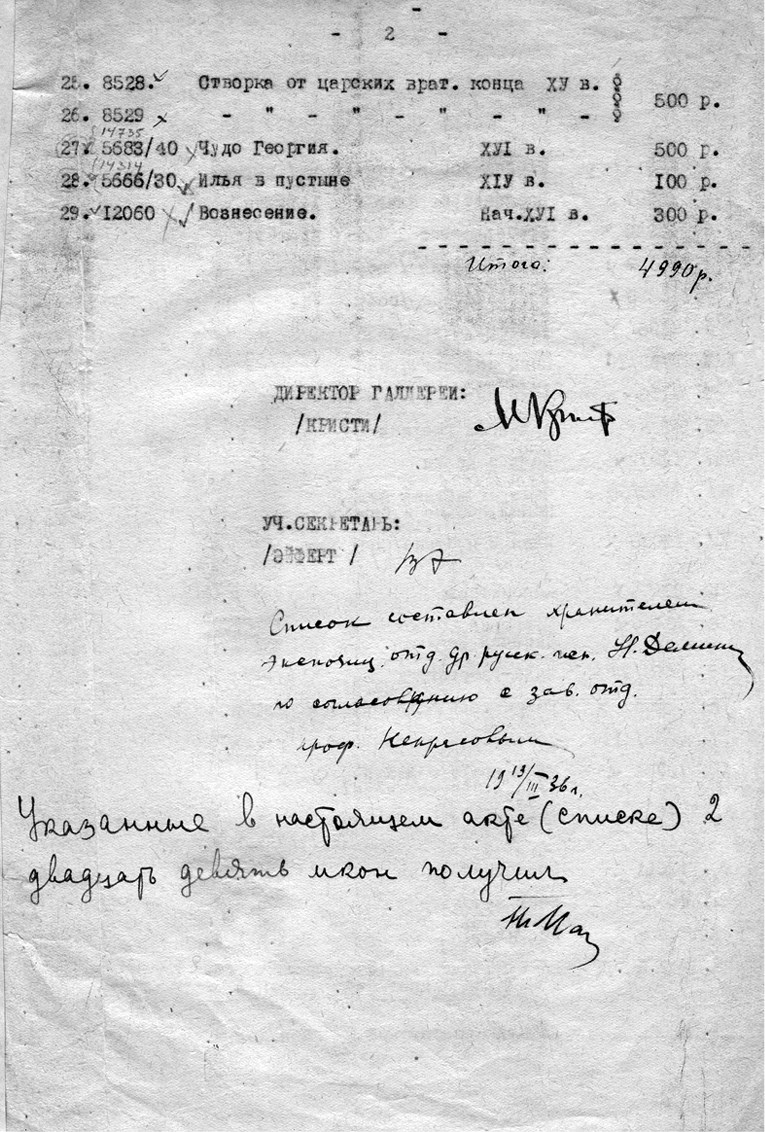 - 2 -
25. 8528. Створка от царских врат. конца XУ в.
500 р.
26. 8529 - " - " - " - " -
14735
27. 5683/40 Чудо Георгия. ХУІ в. 500 р.
14314
28. 5666/30 Илья в пустыне ХІУ в. 100 р.
29. 12060 Вознесение. Нач.ХУІ в. 300 р.
Итого: 4990 р.
ДИРЕКТОР ГАЛЛЕРЕИ:
/КРИСТИ/
УЧ.СЕКРЕТАРЬ:
/ЭЙФЕРТ /
Список составлен хранителем
экспозиц. отд. др. русск. иск. Н. Деминой
по согласованию с зав. отд.
проф. Некрасовым
19 19/III 36 г.
Указанные в настоящем акте (списке) 2
двадцать девять икон получил